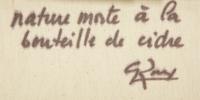 nature morte à la
bouteille de cidre
GRoux